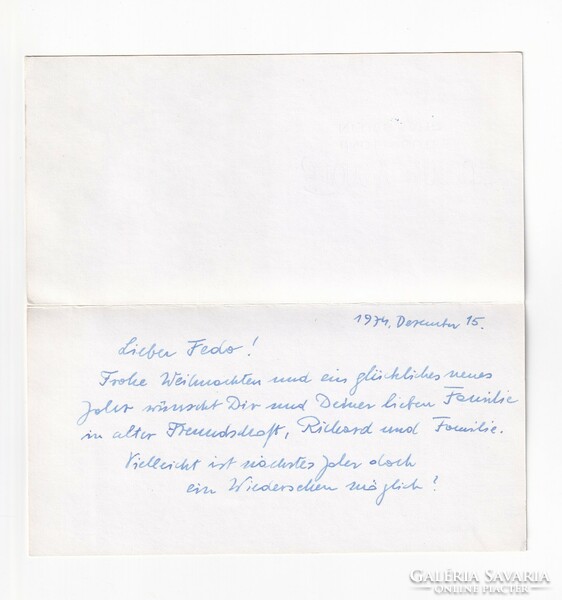 1974. Dezember 15.
Lieber Fedo!
Frohe Weihnachten und ein glückliches neues
Jahr wünscht Dir und Deiner lieben Familie
in alter Freundschaft, Richard und Familie.
Vielleicht ist nächstes Jahr doch
ein Wiedersehen möglich!
GALÉRIA SAVARIA
ONLINE PIACTÉR